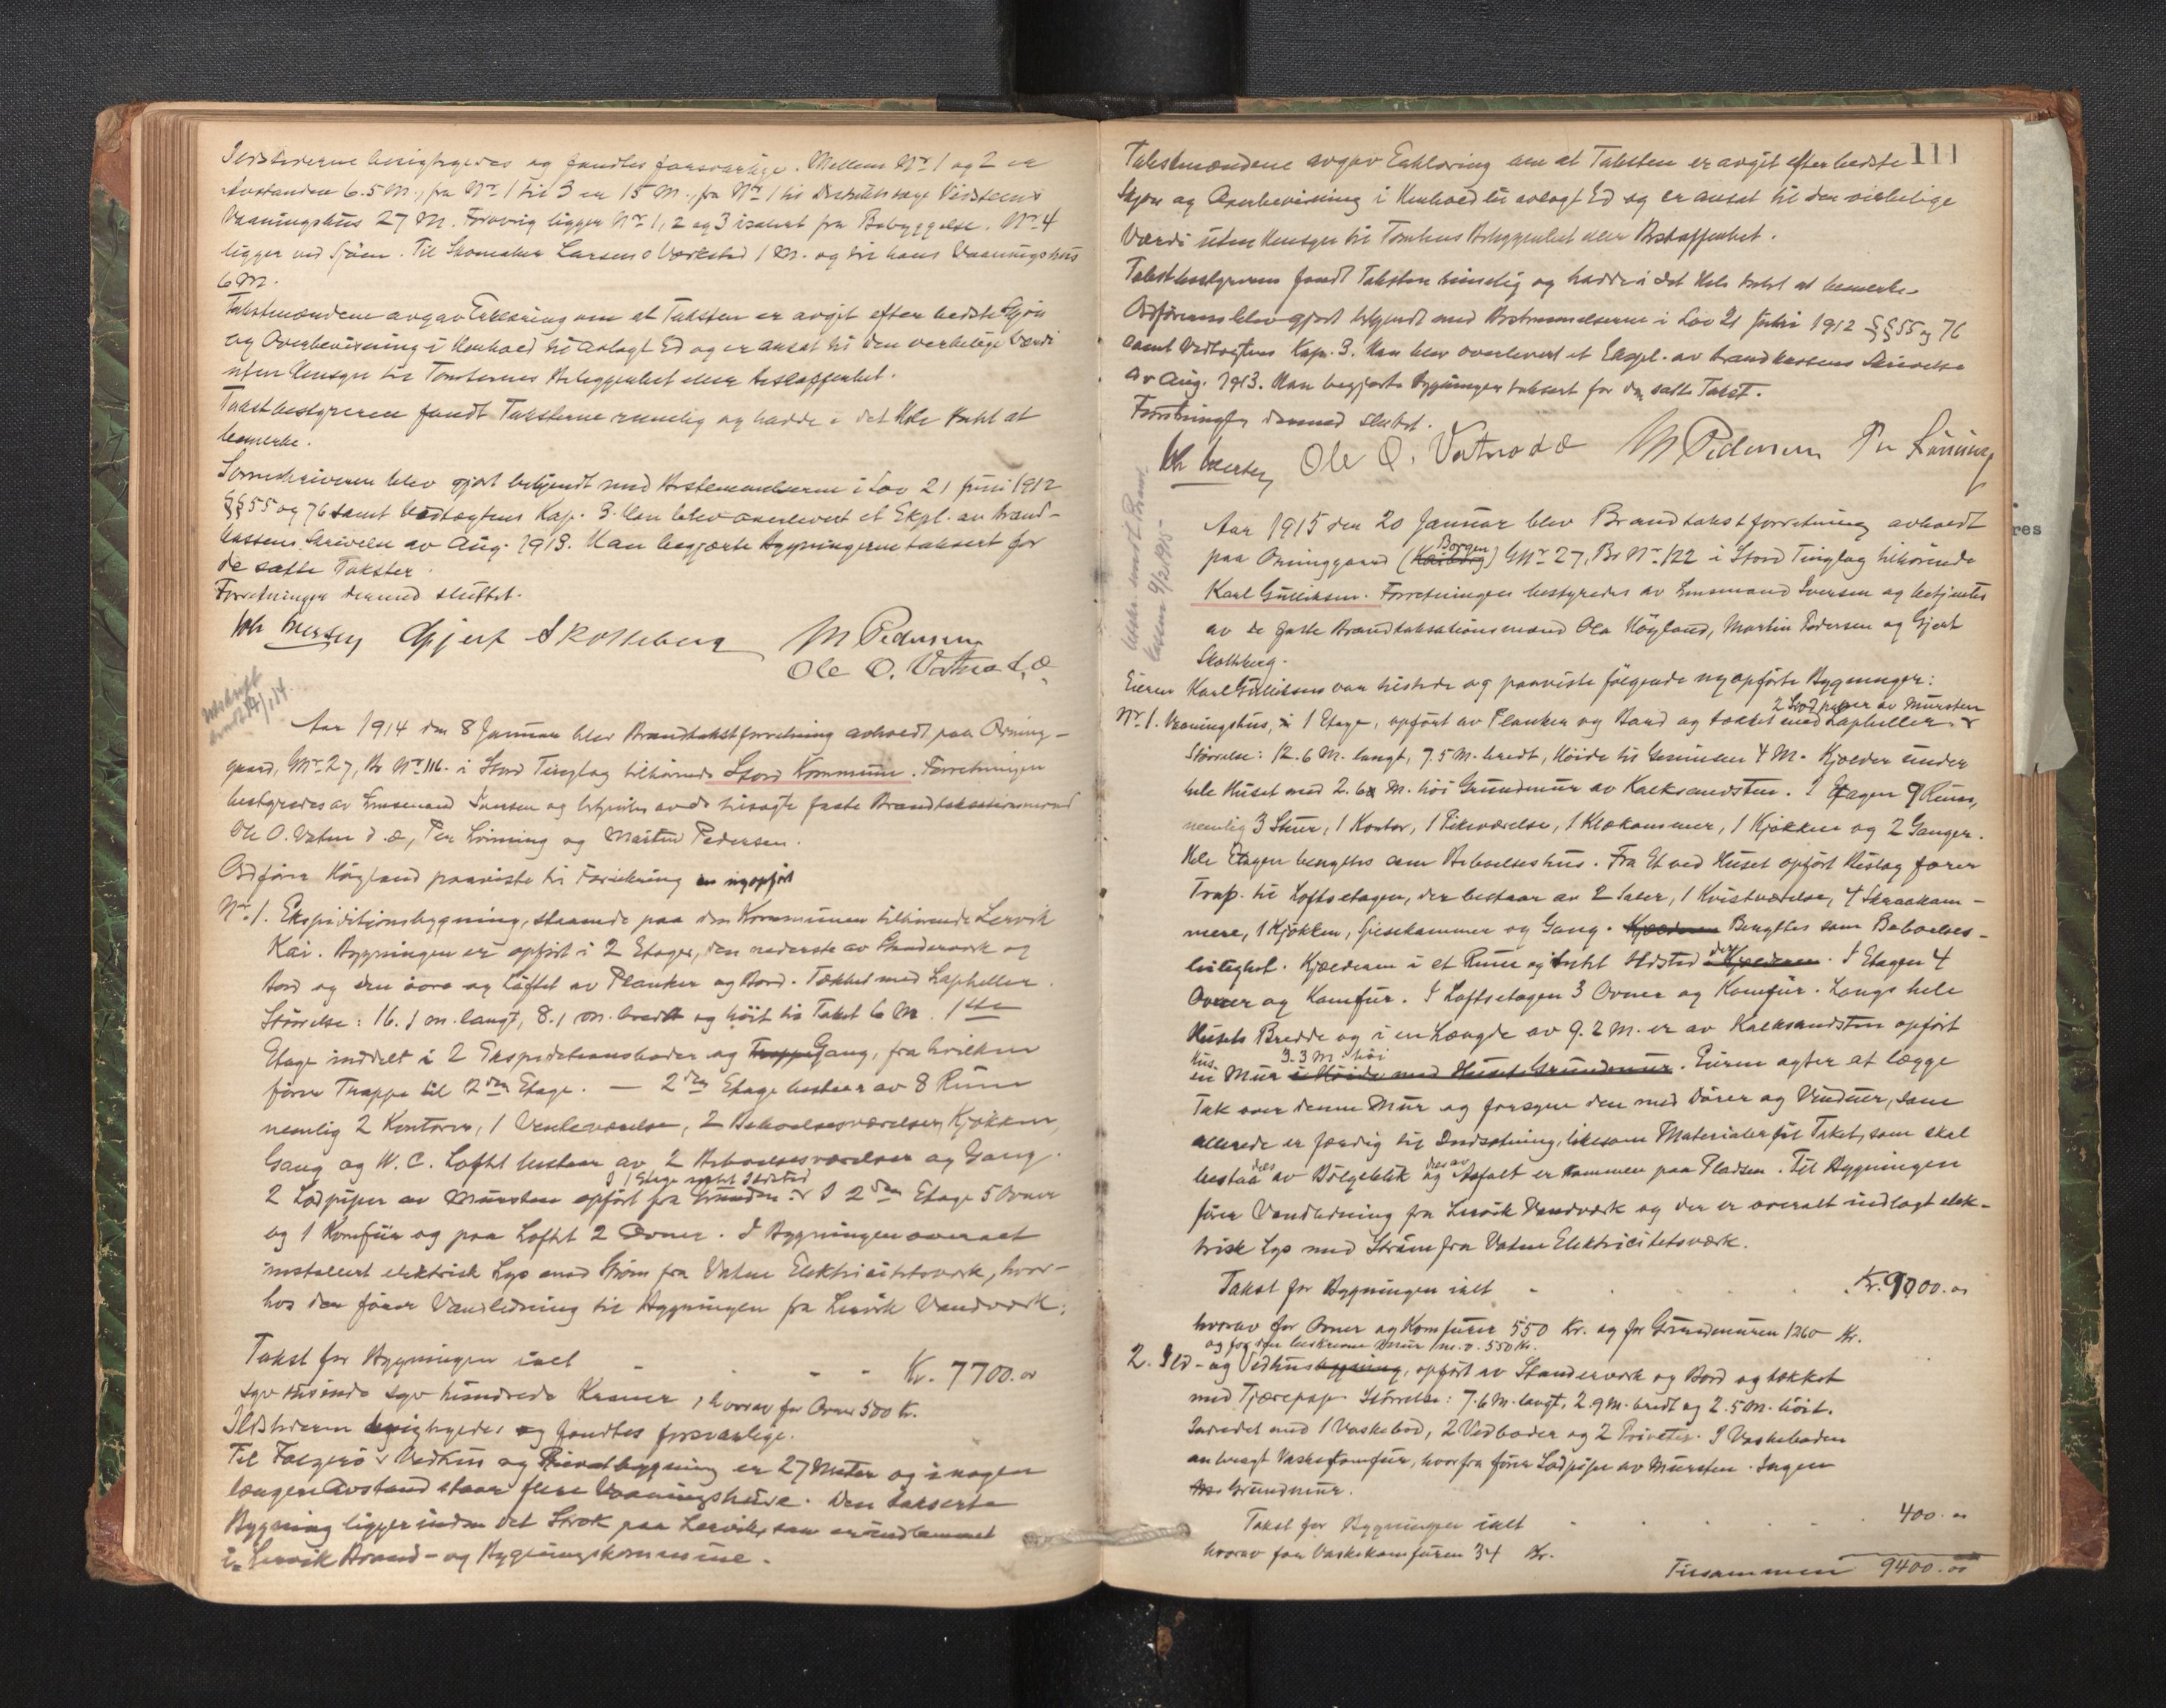 Ildstederne besigtigedes og fandtes forsvarlige. Mellem No 1 og 2 er
Avstanden 6.5 M., fra No 1 til 3 er 15 M., fra No 1 til Distriktslæge Vidsteens
Vaaningshus 27 M. Forøvrig ligger No 1, 2 og 3 isolert fra Bebyggelse. No 4
ligger ved Sjøen. Til Skomaker Larsens Verksted 1 M. og til hans Vaaningshus
6 M.
Takstmændene avgav Erklæring om at Taksten er avgit efter bedste Skjøn
og Overbevisning i Henhold til avlagt Ed og er ansat til den virkelige Værdi
uten Hensyn til Tomternes Beliggenhet eller Beskaffenhet.
Takstbestyreren fandt Taksterne rimelig og hadde i det Hele intet at
bemerke.
Sorenskriveren blev gjort bekjendt med Bestemmelserne i Lov 21 Juni 1912
§§ 55 og 76 samt Vedtægtens Kap. 3. Han blev overlevert et Ekspl. av Brand-
kassens Skrivelse av Aug. 1913. Han begjærte Bygningerne taksert for
de satte Takster.
Forretningen dermed sluttet.
Joh Iversen Gjert Skotteberg M Pedersen
Ole O. Vatna d. æ.
Aar 1914 den 8 Januar blev Brandtakstforretning avholdt paa Orning-
gaard, GNr 27, Br Nr 116. i Stord Tinglag tilhørende Stord Kommune. Forretningen
bestyredes av Lensmand Iversen og betjentes av de tilsagte faste Brandtakstationsmænd
Ole O. Vatna d. æ, Per Lönning og Martin Pedersen.
Ordfører Høgland paaviste til Forsikring en nyopført
No 1. Ekspeditionsbygning, staaende paa den Kommunen tilhørende Lervik
Kai. Bygningen er opført i 2 Etager, den nederste av Stenderverk og
Bord og den øvre og Loftet av Planker og Bord. Tækket med Lapheller.
Størrelse: 16.1 m. langt, 8.1 m. bredt og høit til Taket 6 M. 1ste
Etage inddelt i 2 Ekspeditionsboder og Trappe Gang, fra hvilken
fører Trappe til 2den Etage. — 2den Etage bestaar av 8 Rum
nemlig 2 Kontorer, 1 Venteværelse, 2 Beboelsesværelser, Kjøkken,
Gang og W.C. Loftet bestaar av 2 Beboelsesværelser og Gang.
I 1 Etage intet Ildsted
2 Lødpiper av Mursten opført fra Grunden. I 2den Etage 5 Ovner
og 1 Komfur og paa Loftet 2 Ovner. I Bygningen overalt
installert elektrisk Lys med Strøm fra Vatne Elektricitetsverk, hvor-
hos der fører Vandledning til Bygningen fra Lervik Vandverk.
Takst for Bygningen ialt - - - Kr. 7700.00
syv tusinde syv hundrede Kroner, hvorav for Ovner 500 Kr.
Ildstederne besigtigedes og fandtes forsvarlige.
Til Falgerø's Vedhus og Privetbygning er 27 Meter og i nogen
længere Avstand staar flere Vaaningshuse. Den takserte
Bygning ligger inden det Strøk paa Lervik, som er indlemmet
i Lervik Brand- og Bygningskommune.
111
Takstmændene avgav Erklæring om at Taksten er avgit efter bedste
Skjøn og Overbevisning i Henhold til avlagt Ed og er ansat til den virkelige
Værdi uten Hensyn til Tomtens Beliggenhet eller Beskaffenhet.
Takstbestyreren fandt Taksten rimelig og hadde i det Hele intet at bemerke.
Ordføreren blev gjort bekjendt med Bestemmelserne i Lov 21 Juni 1912 §§ 55 og 76
samt Vedtægtens Kap. 3. Han blev overlevert et Ekspl. av Brandkassens Skrivelse
av Aug. 1913. Han begjærte Bygningen taksert for den satte Takst.
Forretningen dermed sluttet.
Joh Iversen Ole O. Vatna d æ M Pedersen Per Lönning
Aar 1915 den 20 Januar blev Brandtakstforretning avholdt
Borgen
paa Orninggaard () GNr 27, Br Nr 122 i Stord Tinglag tilhørende
Karl Gulliksen. Forretningen bestyredes av Lensmand Iversen og betjentes
av de faste Brandtaksationsmænd Ola Högland, Martin Pedersen og Gjert
Skotteberg.
Eieren Karl Gulliksen var tilstede og paaviste følgende nyopførte Bygninger:
2 Lødpiper av Mursten
No 1. Vaaningshus, i 1 Etage, opført av Planker og Bord og tækket med Lapheller.
Størrelse: 12.6 M. langt, 7.5 M. bredt, Høide til Gesimsen 4 M. Kjælder under
hele Huset med 2.6 M. høi Grundmur av Kalksandsten. I Etagen 9 Rum,
nemlig 3 Stuer, 1 Kontor, 1 Pikeværelse, 1 Klækammer, 1 Kjøkken og 2 Ganger.
Hele Etagen benyttes som Beboelseshus. Fra Et ved Huset opført Bislag fører
Trap. til Loftsetagen, der bestaar av 2 Saler, 1 Kvistværelse, 4 Skraakam-
mere, 1 Kjøkken, Spisekammer og Gang. Kjælderen Benyttes som Beboelses-
leilighet. Kjælderen i et Rum og intet Ildsted der i Kjælderen. I Etagen 4
Ovner og Komfur. I Loftsetagen 3 Ovner og Komfur. Langs hele
Husets Bredde og i en Længde av 9.2 M. er av Kalksandsten opført
3.3 M. høi
en Mur i Høide med Husets Grundmur. Eieren agter at lægge
Tak over denne Mur og forsyne den med Dører og Vinduer, som
allerede er færdig til Indsætning, likesom Materialer til Taket, som skal
bestaa dels av Bølgeblik og dels av Asfalt er kommen paa Pladsen. Til Bygningen
fører Vandledning fra Lervik Vandverk og der er overalt indlagt elek-
trisk Lys med Strøm fra Vatne Elektricitetsværk.
Takst for Bygningen ialt - . . . Kr. 9000.00
hvorav for Ovner og Komfurer 550 Kr. og for Grundmuren 1260 Kr.
og for den beskrevne Mur m.v. 550 Kr.
2. Ild- og Vedhusbygning, opført av Stenderverk og Bord og tækket
med Tjærepap. Størrelse: 7.6 M. langt, 2.9 M. bredt og 2.5 M. høit.
Indredet med 1 Vaskebod, 2 Vedboder og 2 Priveter. I Vaskeboden
anbragt Vaskekomfur, hvorfra fører Lødpipe av Mursten. Ingen
Grundmur.
Takst for Bygningen ialt - . . . 400.00
hvorav for Vaskekomfuren 34 Kr.
Tilsammen 9400.00
res